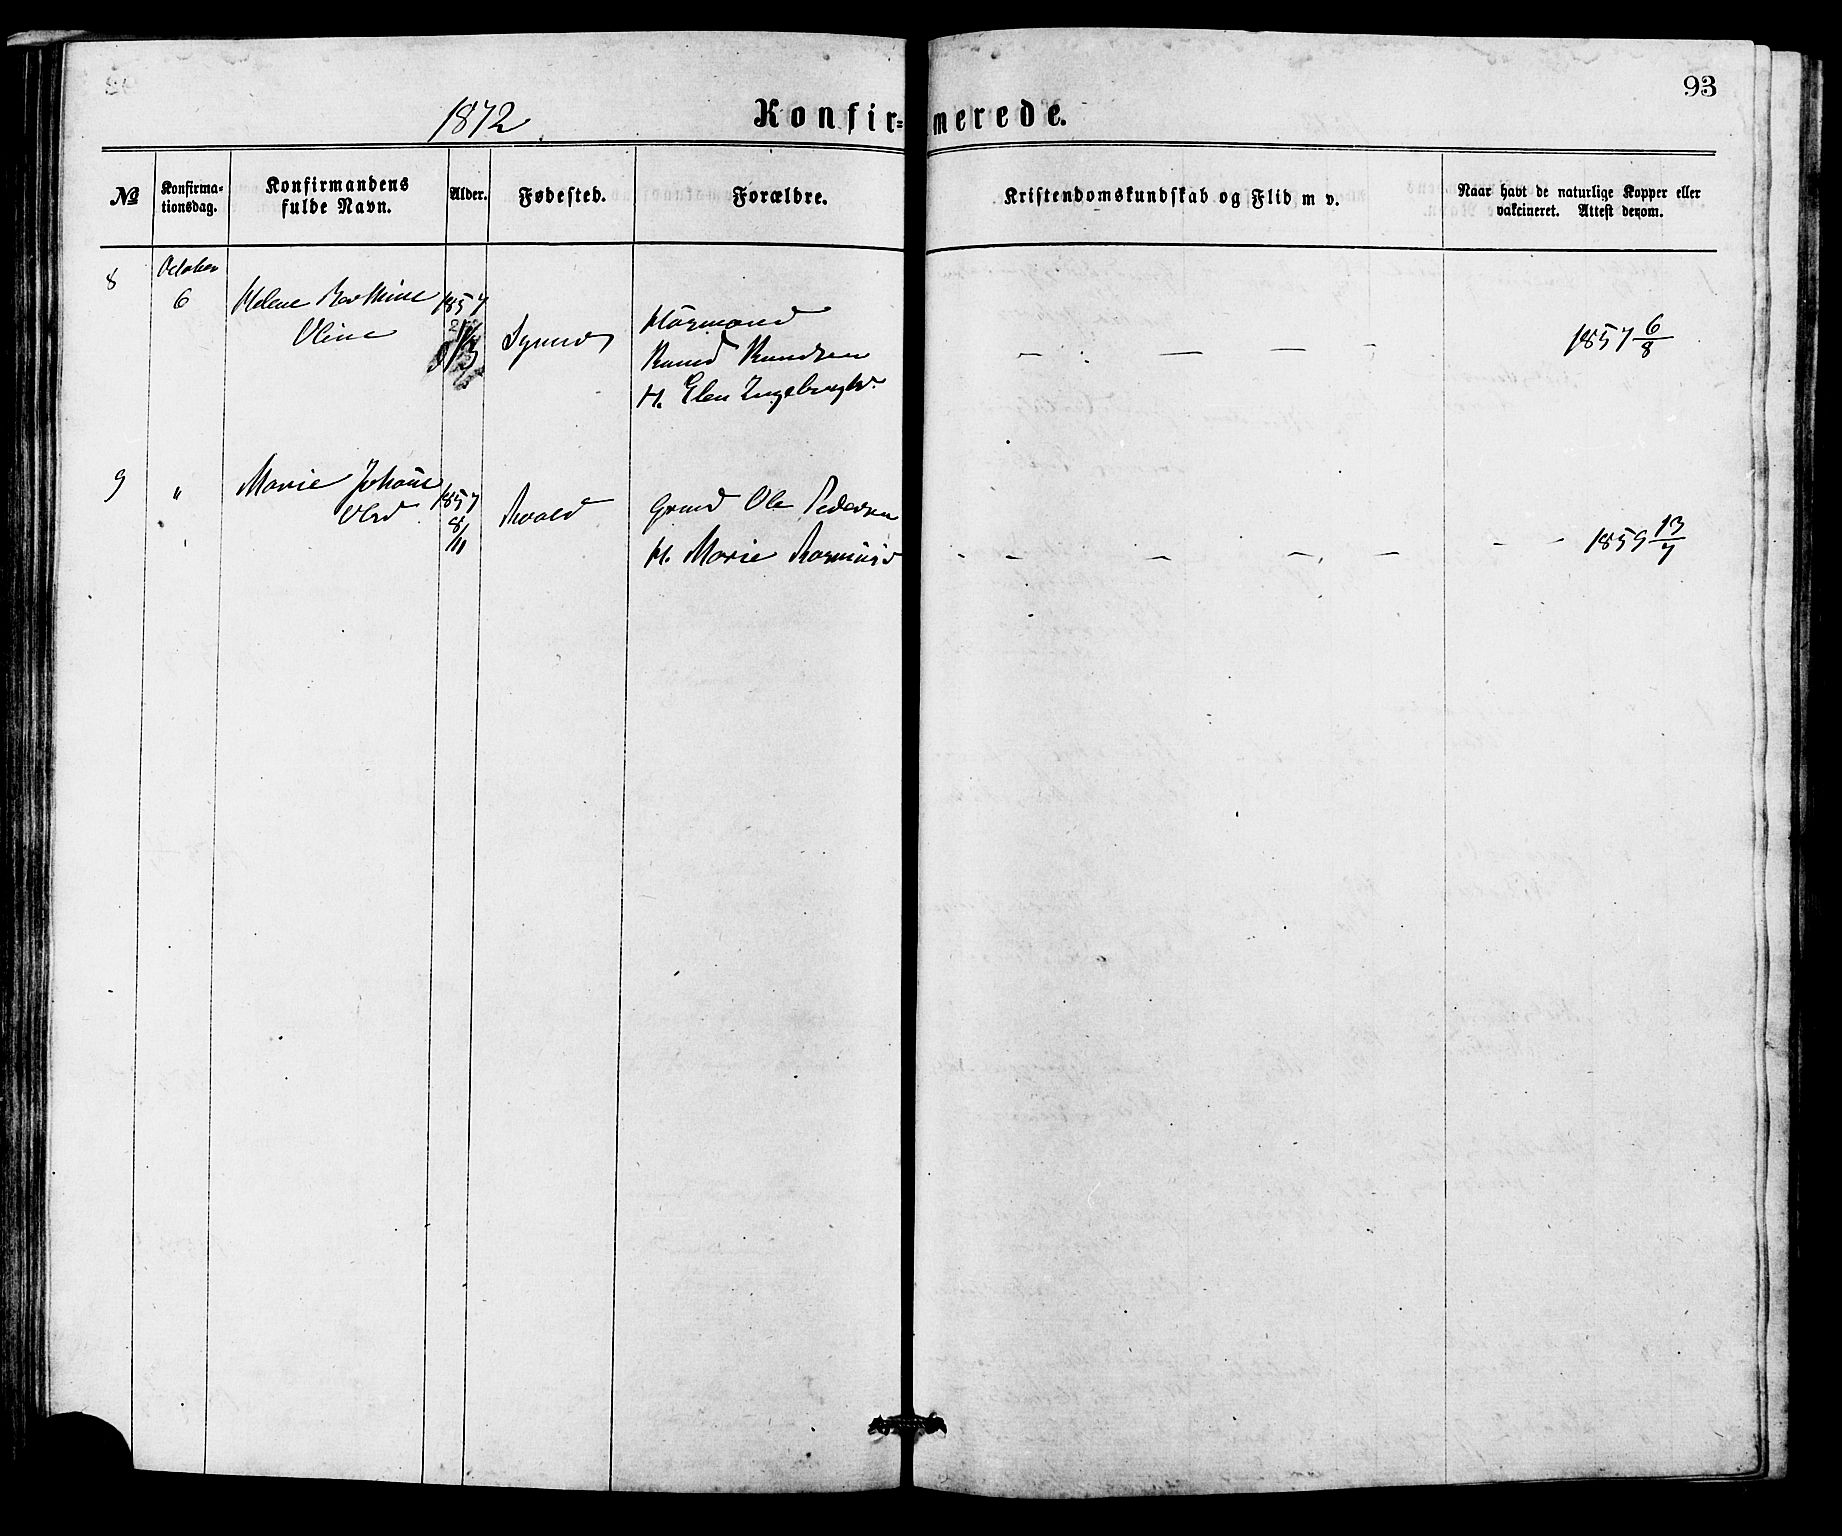 93
1872
Konfir=merede.
No
Konfirma-
tionsdag.
Konfirmandens
fulde Navn.
Alder.
Fødested.
Forældre.
Kristendomskundskab og Flid m v.
Naar havt de naturlige Kopper eller
vakcineret. Attest derom.
8
October
6
Helene
Oline
1857
Husmand
Knud Knudsen
H. Elen Ingebregts.
1857 6/8
9
"
Marie Johāne
Olsd
1857
8/11
Aroald
Grmd Ole Pedersen
H. Marie Rasmusd
1859 13/7